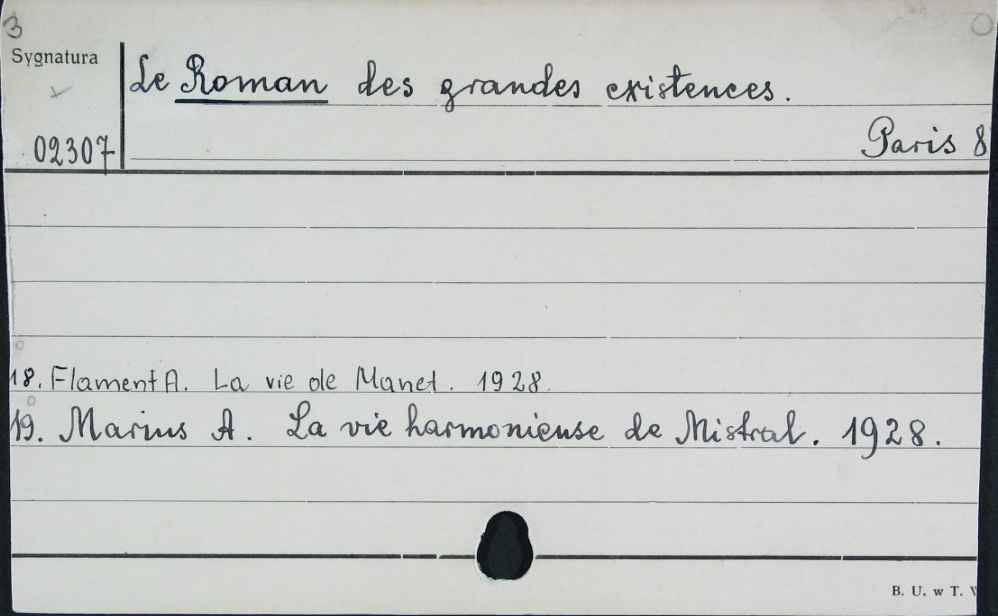 3
Sygnatura
Le Roman des grandes existences.
02307
Paris 8
18. Flament A. La vie de Manet. 1928.
19. Marius A. La vie harmonieuse de Mistral. 1928.
B. U. w T.